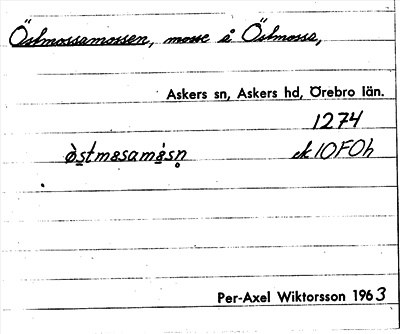 Östmossamossen, mosse å Östmossa,
Askers sn, Askers hd, Örebro län.
1274
ek 10F0h
Per-Axel Wiktorsson 1963